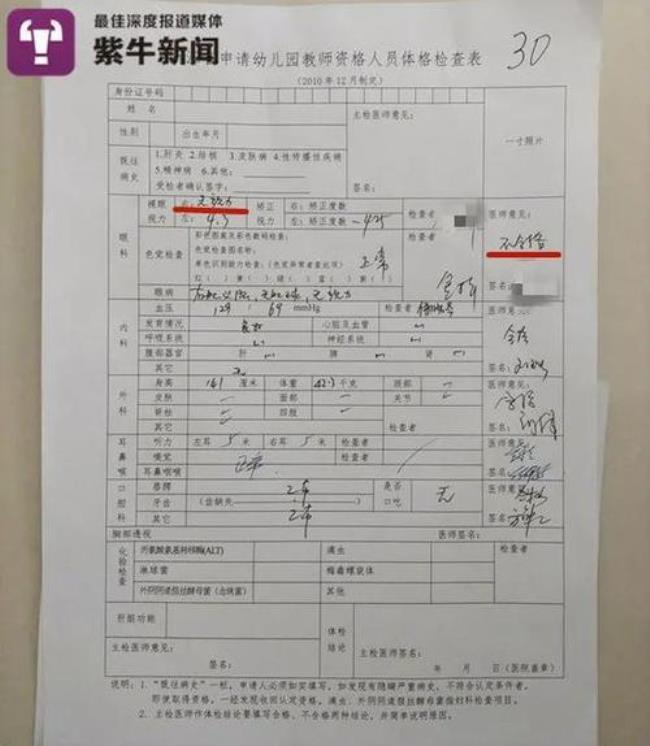 最佳深度报道媒体
紫牛新闻
申请幼儿园教师资格人员体格检查表
30
(2010年12月制定)
身份证号码
姓 名
性别 出生年月
主检医师意见:
签名:
一寸照片
既往病史
1.肝炎 2.结核 3.皮肤病 4.性传播性疾病
5.精神病 6.其他:
受检者确认签字:
眼科
裸眼视力 右: 无视力 左: 4.3
矫正视力 右: 矫正度数 左: 矫正度数 -425
检查者
医师意见:
不合格
签名:
色觉检查
彩色图案及彩色数码检查:
色觉检查图名称:
单色识别能力检查:(色觉异常者查此项)
红( ) 黄( ) 绿( ) 蓝( ) 紫( )
正常
检查者
眼病
内科
血压 129 / 69 mmHg 检查者
发育情况 良好 心脏及血管
呼吸系统 神经系统
腹部器官 肝 脾 肾
其它 无
医师意见:
签名:
外科
身高 161 厘米 体重 42.3 千克 颈部
皮肤 面部 关节
脊柱 四肢
其它 检查者
医师意见:
签名:
耳鼻喉
听力 左耳 5 米 右耳 5 米 检查者
嗅觉 正常 检查者
耳鼻咽喉
医师意见:
签名:
口腔科
唇腭
牙齿 (齿缺失 )
其它
是否口吃 无
医师意见:
签名:
胸部透视 医师签名:
化验检查
丙氨酸氨基转移酶(ALT) 滴虫 检查者
淋球菌 梅毒螺旋体
外阴阴道假丝酵母菌(念珠菌) 其他
肝脏功能
主检医师意见:
签名:
体检结论
主检医师签名:
年 月 日(医院盖章)
说明:1.“既往病史”一栏,申请人必须如实填写,如发现有隐瞒严重病史,不符合认定条件者,
即使取得资格,一经发现收回认定资格。滴虫、外阴阴道假丝酵母菌指妇科检查项目。
2.主检医师作体检结论要填写合格、不合格两种结论,并简单说明原因。